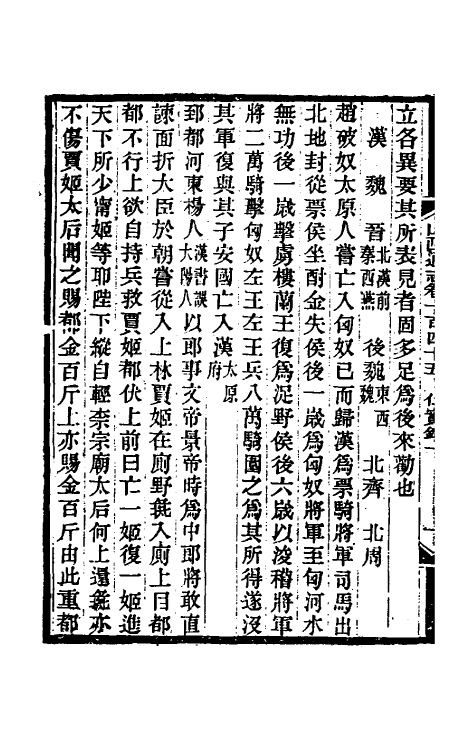 立各異要其所表見者固多足爲後來勸也
漢 魏 晉 北漢前秦西燕 後魏 東西魏 北齊 北周
趙破奴太原人嘗亡入匈奴已而歸漢爲票騎將軍司馬出
北地封從票侯坐酎金失侯後一歲爲匈奴將軍至匈河水
無功後一歲擊虜樓蘭王復爲浞野侯後六歲以浚稽將軍
將二萬騎擊匈奴左王左王兵八萬騎圍之爲其所得遂沒
其軍復與其子安國亡入漢 太原府
郅都河東楊人 漢書誤大陽人 以郎事文帝景帝時爲中郎將敢直
諫面折大臣於朝嘗從入上林賈姬在廁野彘入廁上目都
都不行上欲自持兵救賈姬都伏上前曰亡一姬復一姬進
天下所少甯姬等耶陛下縱自輕柰宗廟太后何上還彘亦
不傷賈姬太后聞之賜都金百斤上亦賜金百斤由此重都
山西通志卷一百四十五